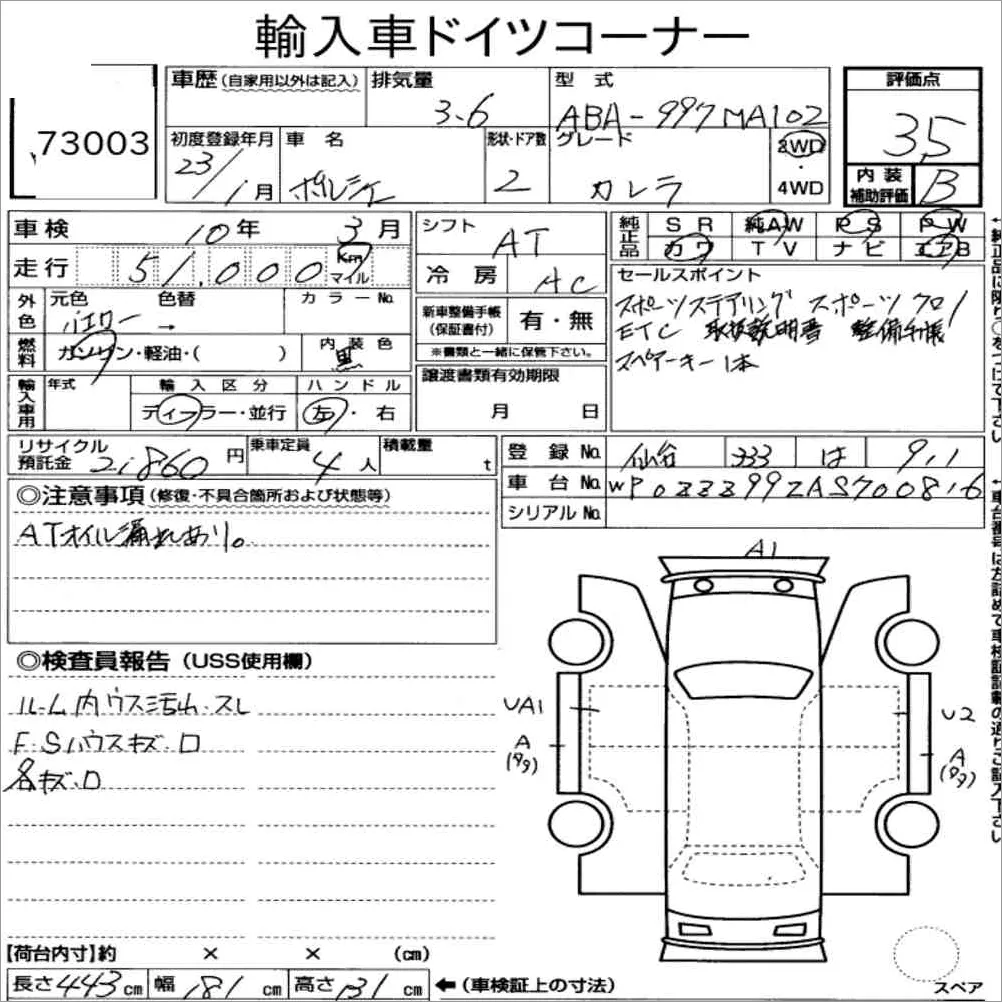 輸入車ドイツコーナー
73003
車歴 (自家用以外は記入)
排気量
3.6
型式
ABA-997MA102
評価点
3.5
初度登録年月
23/1月
車名
ポルシェ
形状・ドア数
2
グレード
カレラ
2WD
・
4WD
内装
補助評価
B
車検 10年 3月
走行 51,000 Km マイル
シフト
AT
冷房
AC
純正品
SR 純AW PS PW
カワ TV ナビ エアB
セールスポイント
スポーツステアリング スポーツクロノ
ETC 取扱説明書 整備手帳
スペアーキー1本
外色
元色 色替 カラーNo.
→
燃料
ガソリン・軽油・( )
内装色
黒
新車整備手帳
(保証書付)
有・無
※書類と一緒に保管下さい。
輸入車用
年式
輸入区分
ディーラー・並行
ハンドル
左・右
譲渡書類有効期限
月 日
リサイクル
預託金
21860円
乗車定員
4人
積載量
t
登録No. 仙台 333 は 911
車台No. WP0ZZZ99ZAS700816
シリアルNo.
◎注意事項 (修復・不具合箇所および状態等)
ATオイル漏れあり。
◎検査員報告 (USS使用欄)
ルーム内ウス汚れ・スレ
F・Sハウスキズ・ロ
各キズ・ロ
A1
UA1
A
U2
A
【荷台内寸】約 × × (cm)
長さ443cm 幅181cm 高さ131cm ←(車検証上の寸法)
スペア
↑純正品に限り○をつけて下さい
↑車台番号は左詰めで車検証記載の通りご記入下さい